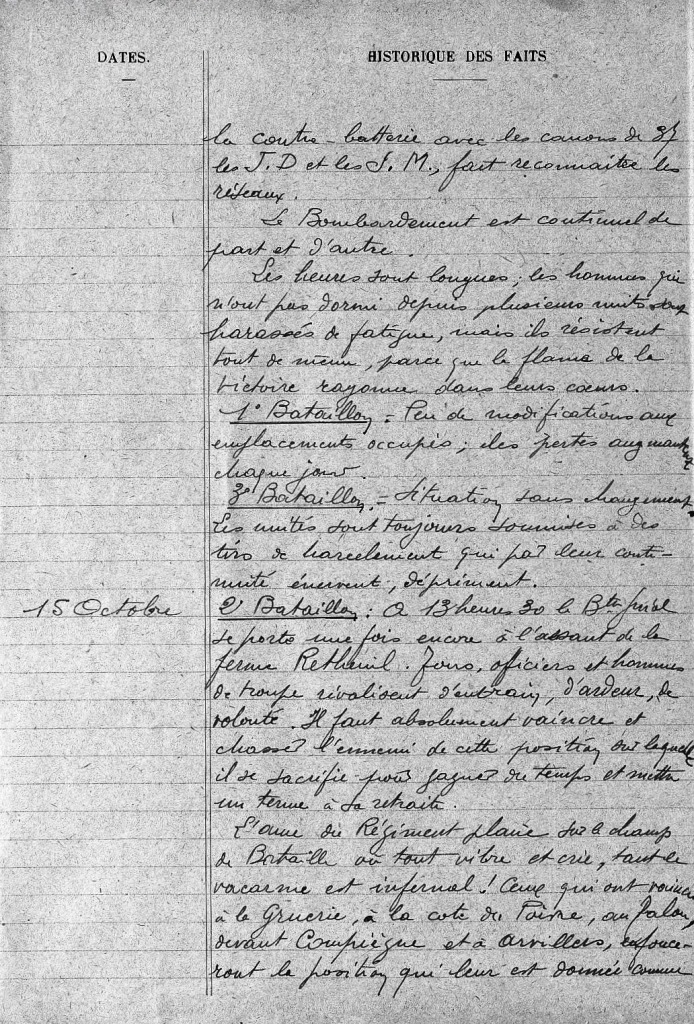 DATES.
HISTORIQUE DES FAITS
la contre-batterie avec les canons de 37
les J.D et les J.M., fait reconnaitre les
réseaux.
Le Bombardement est continuel de
part et d'autre.
Les heures sont longues; les hommes qui
n'ont pas dormi depuis plusieurs nuits sont
harassés de fatigue, mais ils résistent
tout de même, parce que la flamme de la
victoire rayonne dans leurs cœurs.
1° Bataillon = Peu de modifications aux
emplacements occupés; les pertes augmentent
chaque jour.
3° Bataillon = Situation sans changement.
Les unités sont toujours soumises à des
tirs de harcelement qui par leur conti-
nuité énervent, dépriment.
15 Octobre
2° Bataillon : A 13 heures 30 le Btn
se porte une fois encore à l'assaut de la
ferme Retheuil. Tous, officiers et hommes
de troupe rivalisent d'entrain, d'ardeur, de
volonté. Il faut absolument vaincre et
chasser l'ennemi de cette position sur laquelle
il se sacrifie pour gagner du temps et mettre
un terme à sa retraite.
L'ame du Régiment plane sur le champ
de Bataille où tout vibre et crie, tant le
vacarme est infernal! Ceux qui ont vaincu
à la Gruerie, à la cote du Poivre, au Talou,
devant Compiègne et à Arvillers, enfonce-
ront la position qui leur est donnée comme